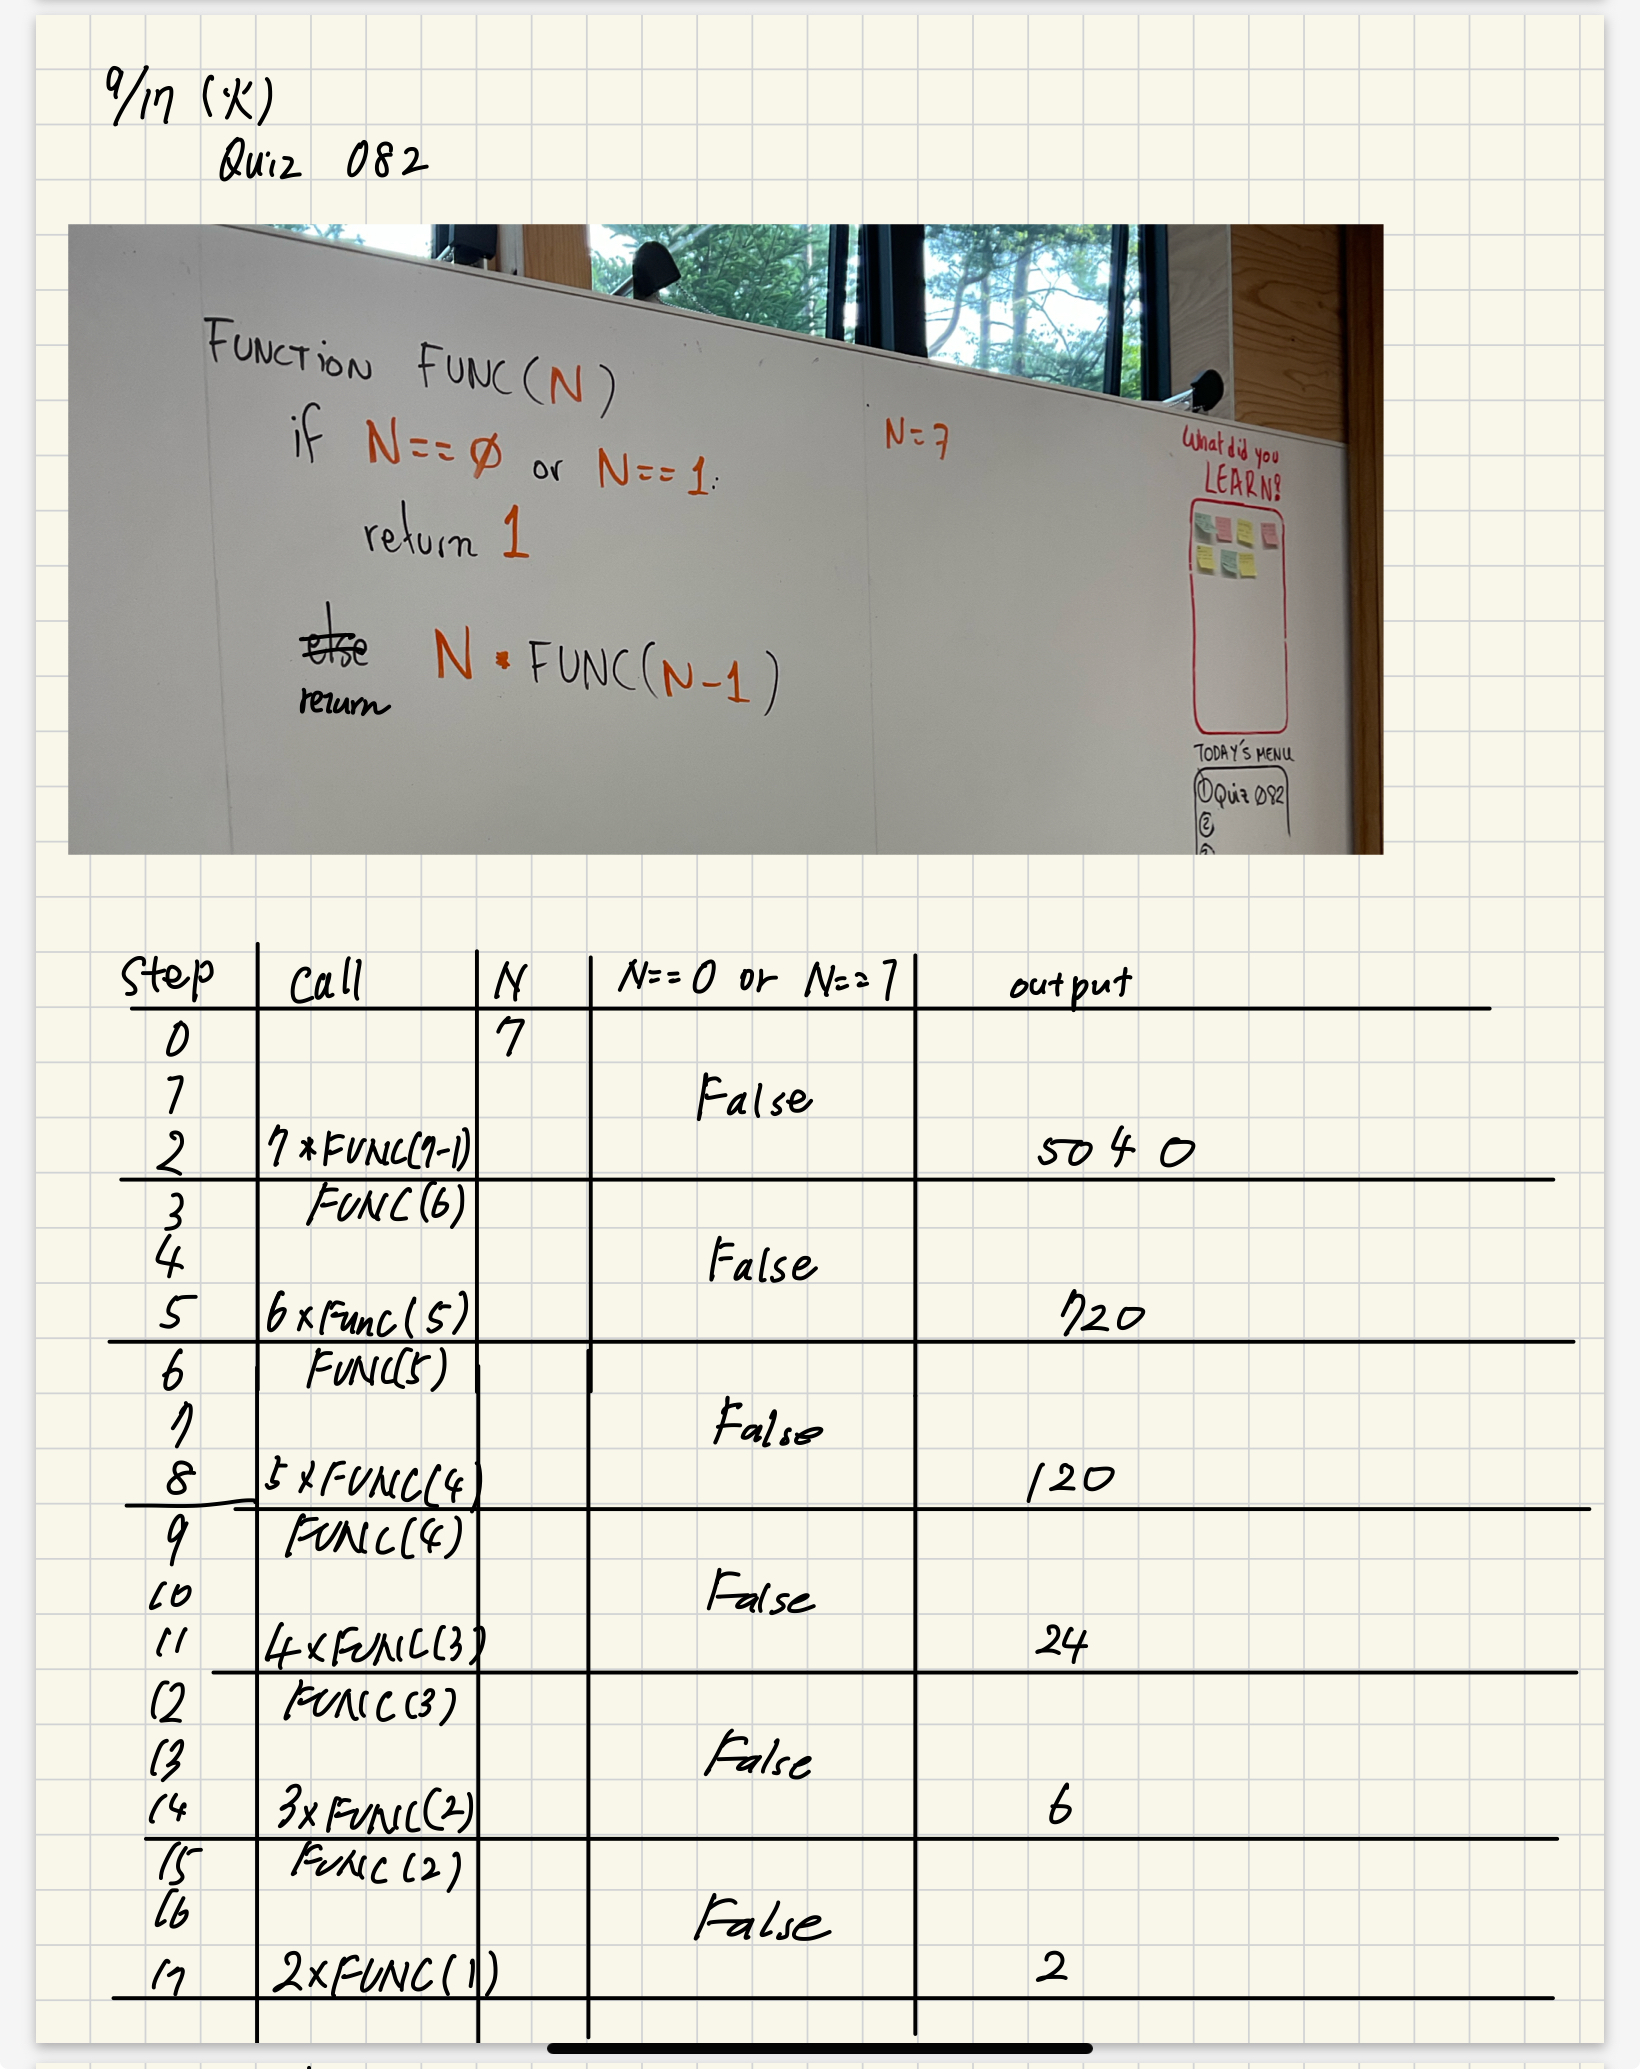 9/17 (火)
Quiz 082
FUNCTION FUNC(N)
if N==Ø or N==1:
return 1
else N * FUNC(N-1)
return
N=7
What did you
LEARN?
TODAY'S MENU
① Quiz Ø82
②
Step Call N N==0 or N==1 output
0 7
1 False
2 7*FUNC(7-1) 5040
3 FUNC(6)
4 False
5 6×Func(5) 720
6 FUNC(5)
7 False
8 5×FUNC(4) 120
9 FUNC(4)
10 False
11 4×FUNC(3) 24
12 FUNC(3)
13 False
14 3×FUNC(2) 6
15 FUNC(2)
16 False
17 2×FUNC(1) 2